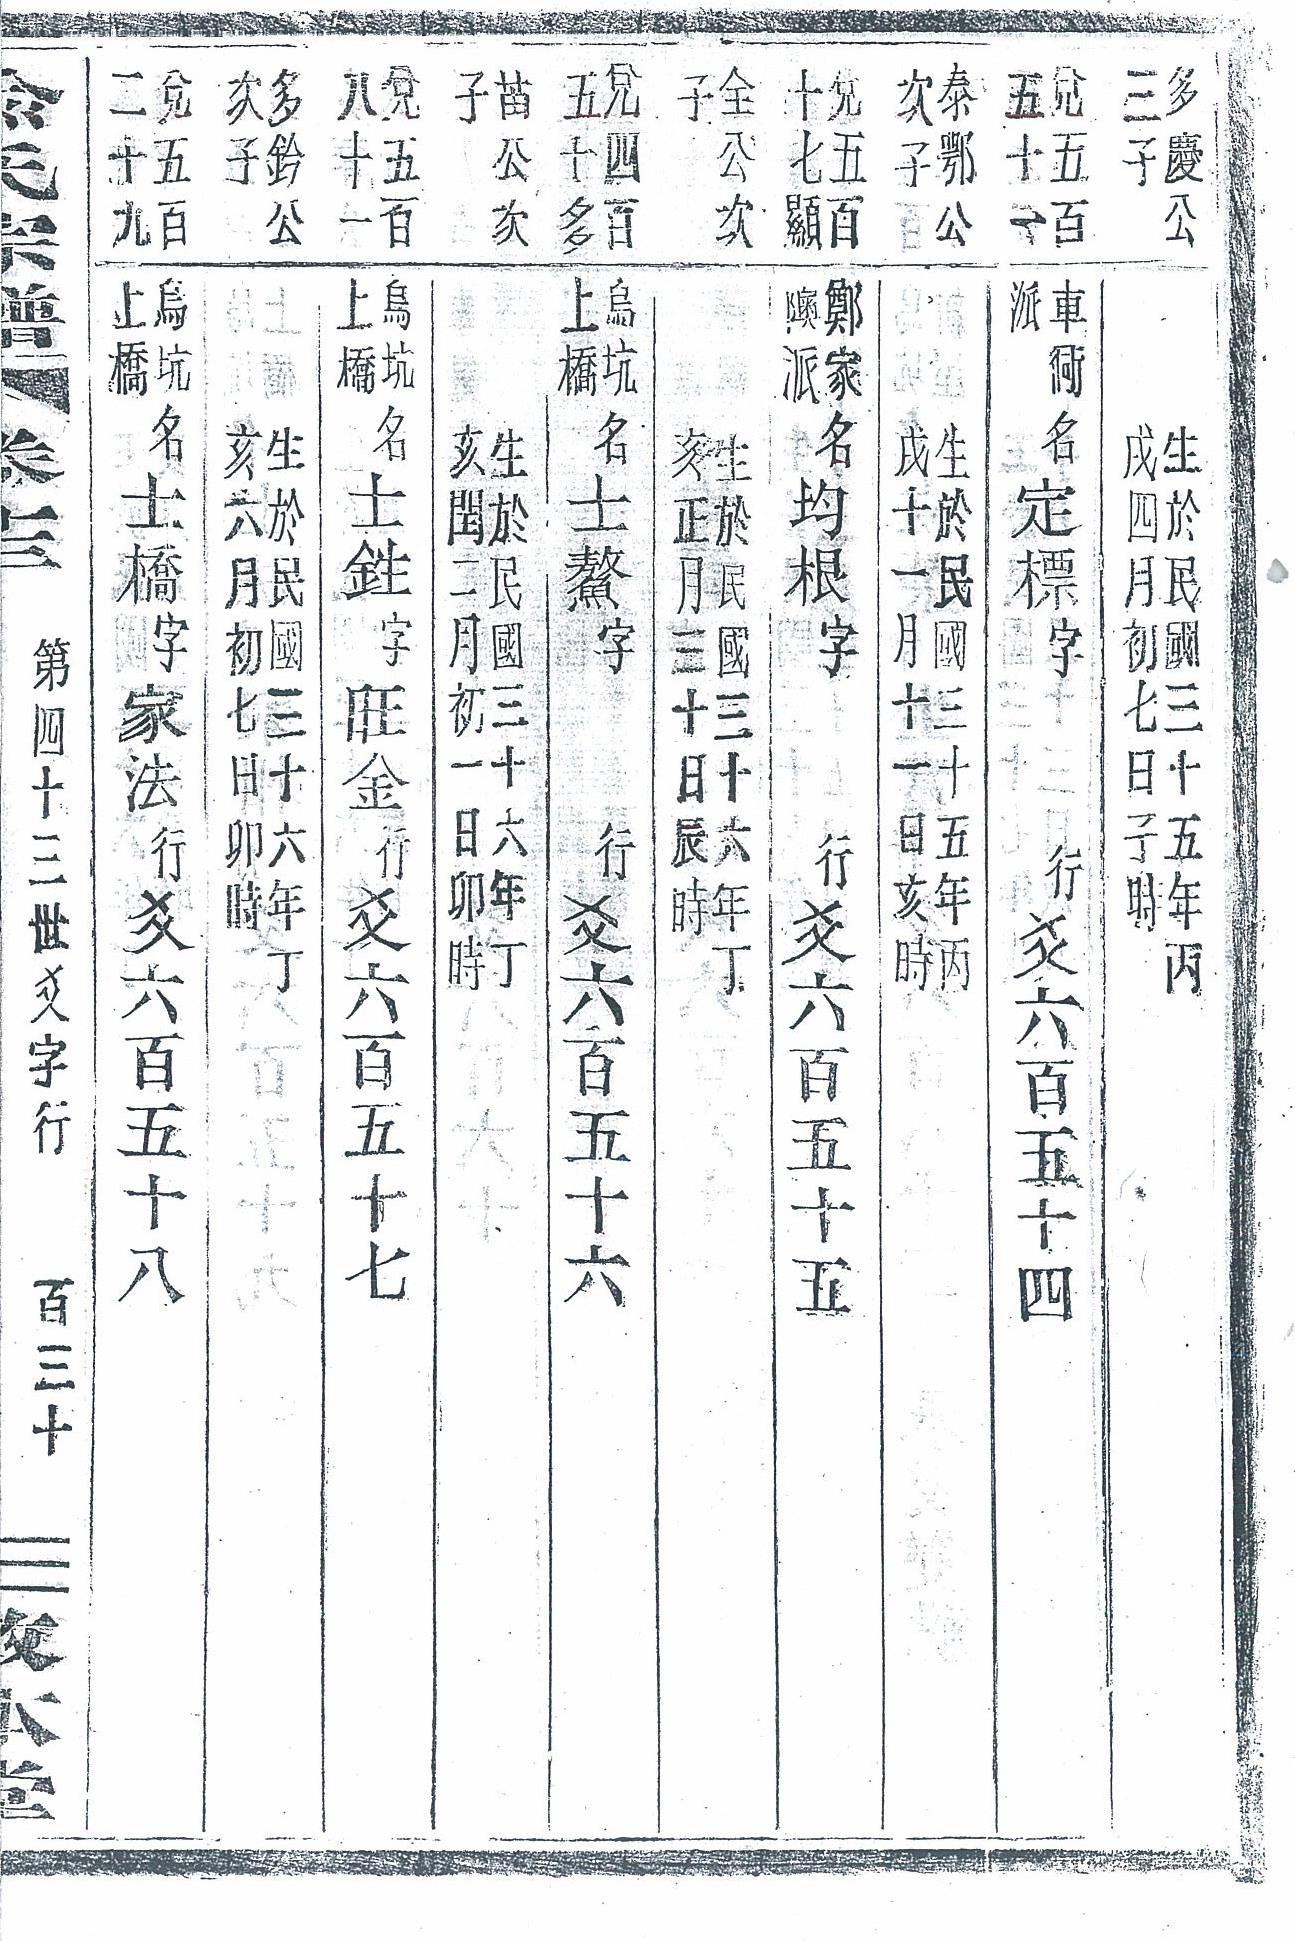 多慶公
三子
生於民國三十五年丙
戌四月初七日子時
兌五百
五十
車衕
派
名定標字 行爻六百五十四
泰鄂公
次子
生於民國三十五年丙
戌十一月十一日亥時
兌五百
十七顯
鄭家
派
名均根字 行爻六百五十五
全公次
子
生於民國三十六年丁
亥正月三十日辰時
兌四百
五十多
烏坑
上橋
名士鰲字 行爻六百五十六
苗公次
子
生於民國三十六年丁
亥閏二月初一日卯時
兌五百
八十一
烏坑
上橋
名士 字旺金行爻六百五十七
多鈴公
次子
生於民國三十六年丁
亥六月初七日卯時
兌五百
二十九
烏坑
上橋
名士橋字家法行爻六百五十八
氏宗譜
第四十三世爻字行 百三十
本堂